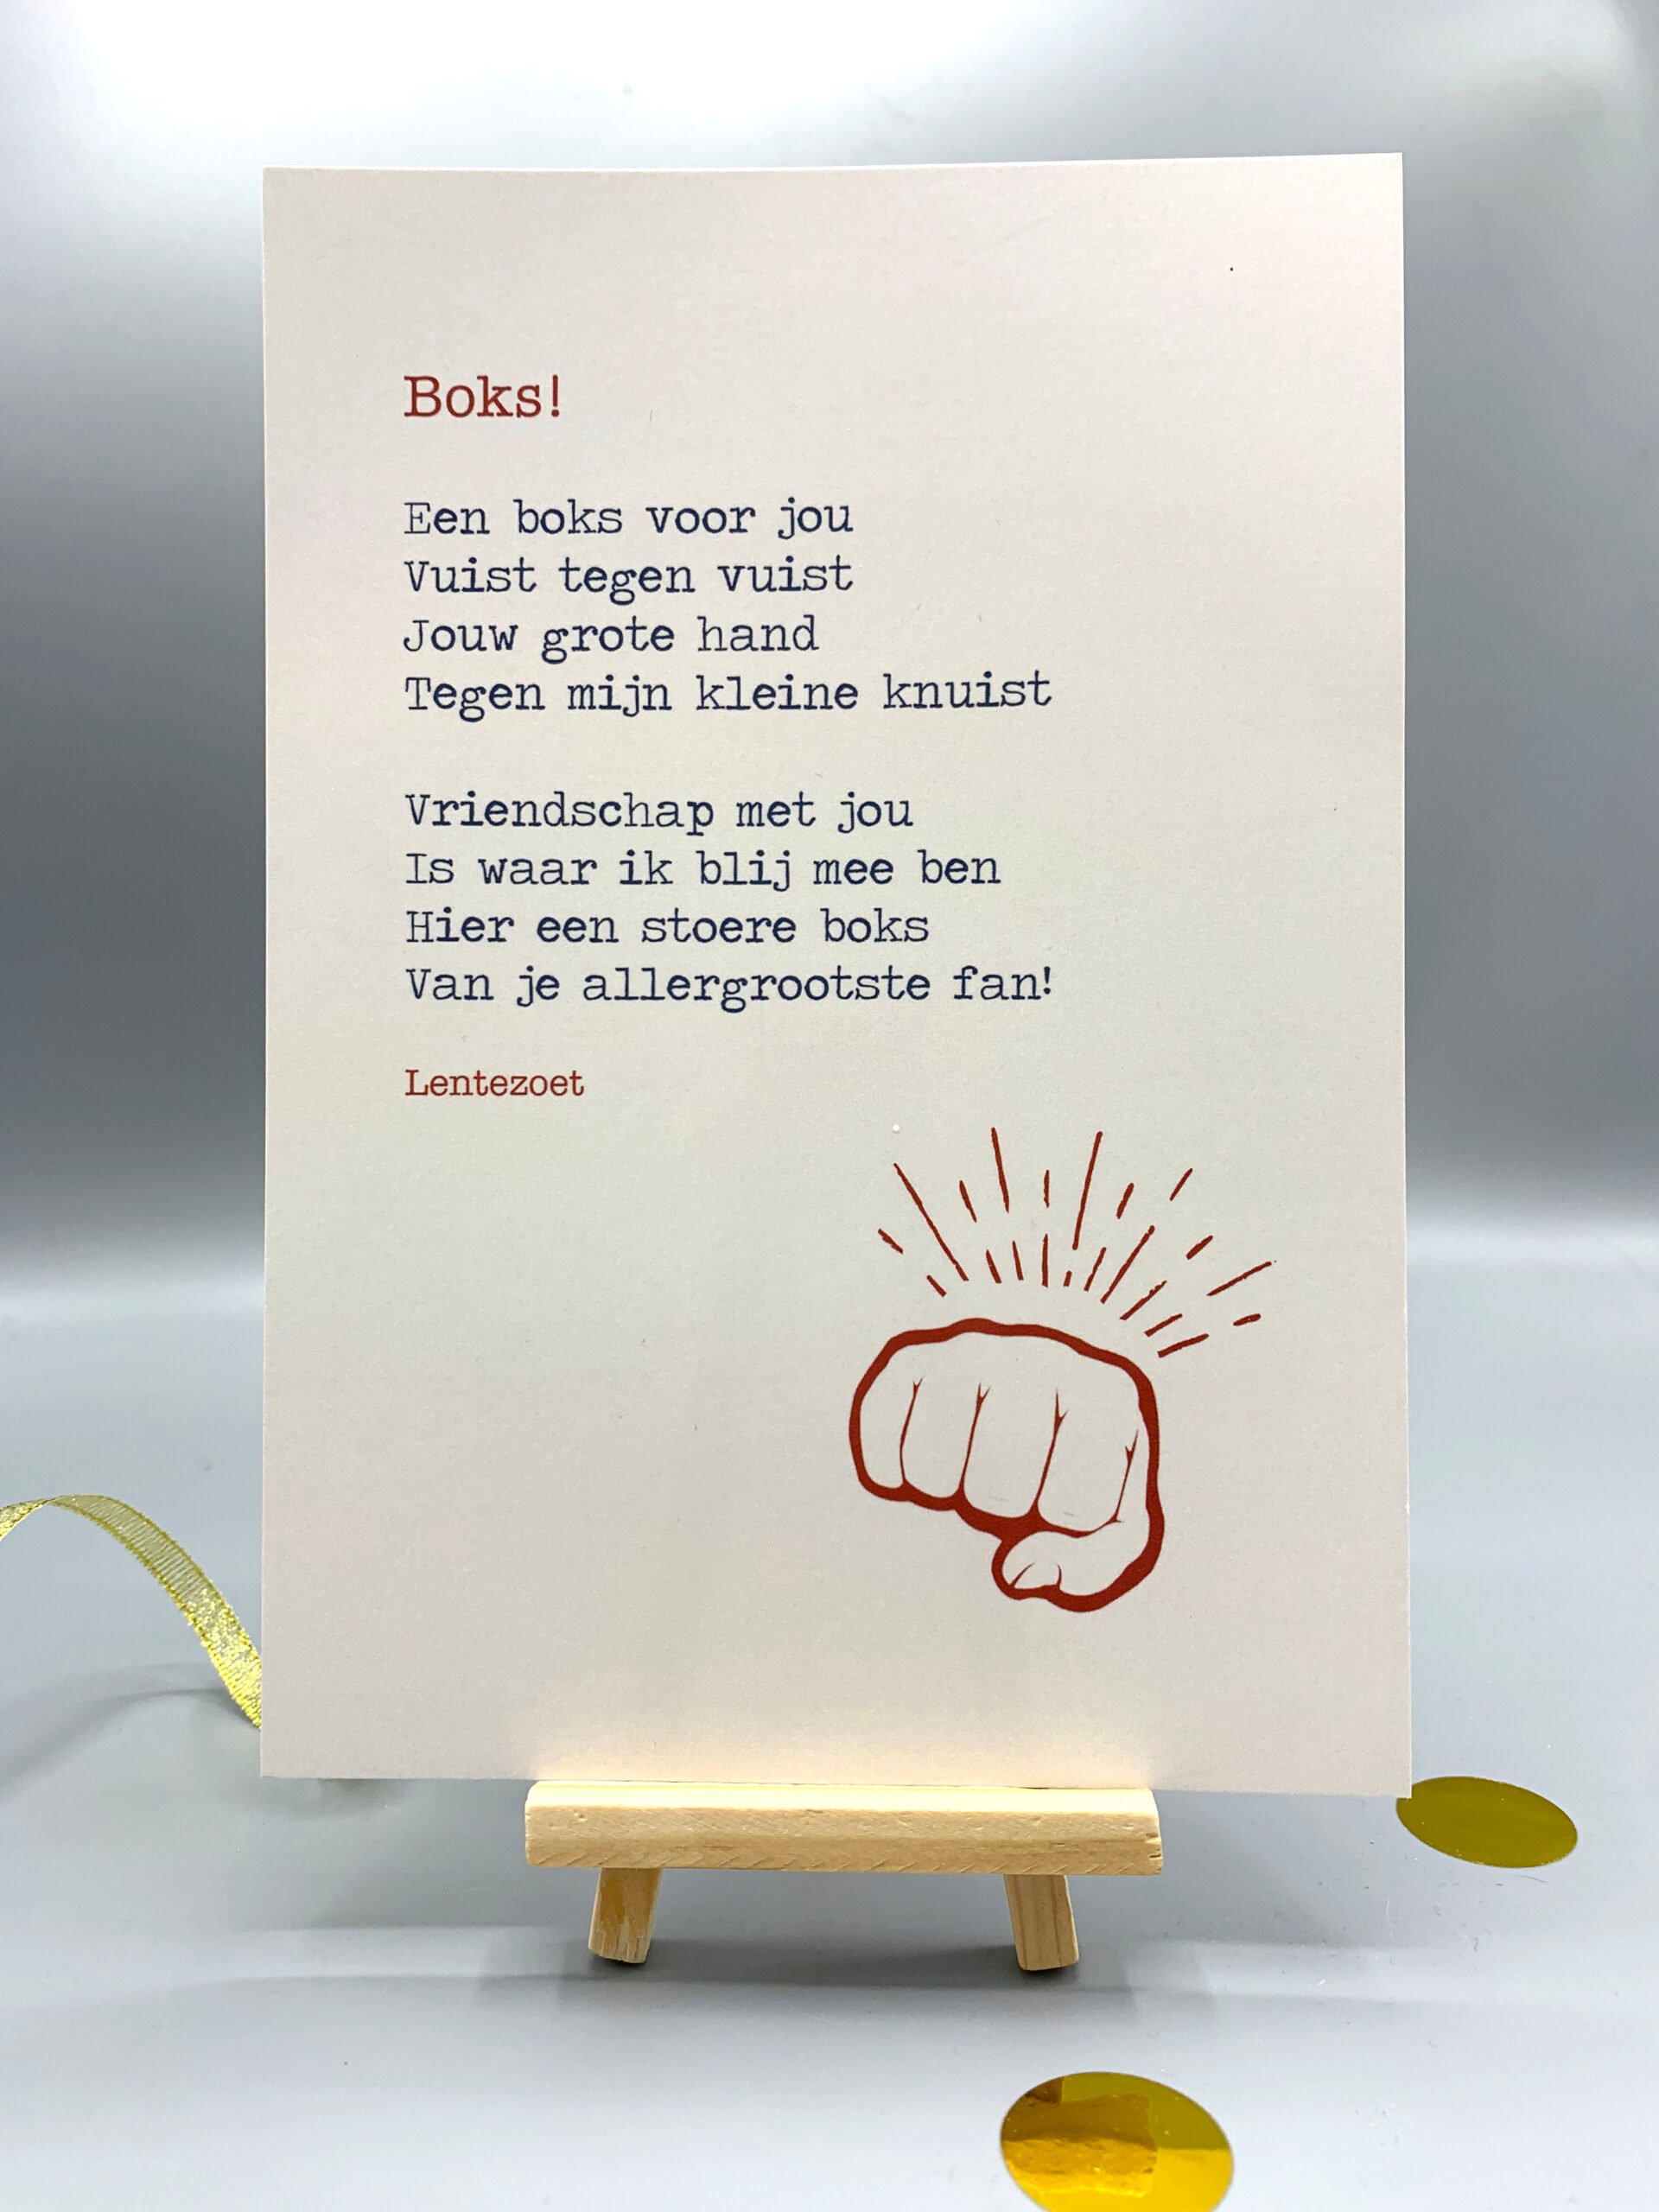 Boks!
Een boks voor jou
Vuist tegen vuist
Jouw grote hand
Tegen mijn kleine knuist
Vriendschap met jou
Is waar ik blij mee ben
Hier een stoere boks
Van je allergrootste fan!
Lentezoet